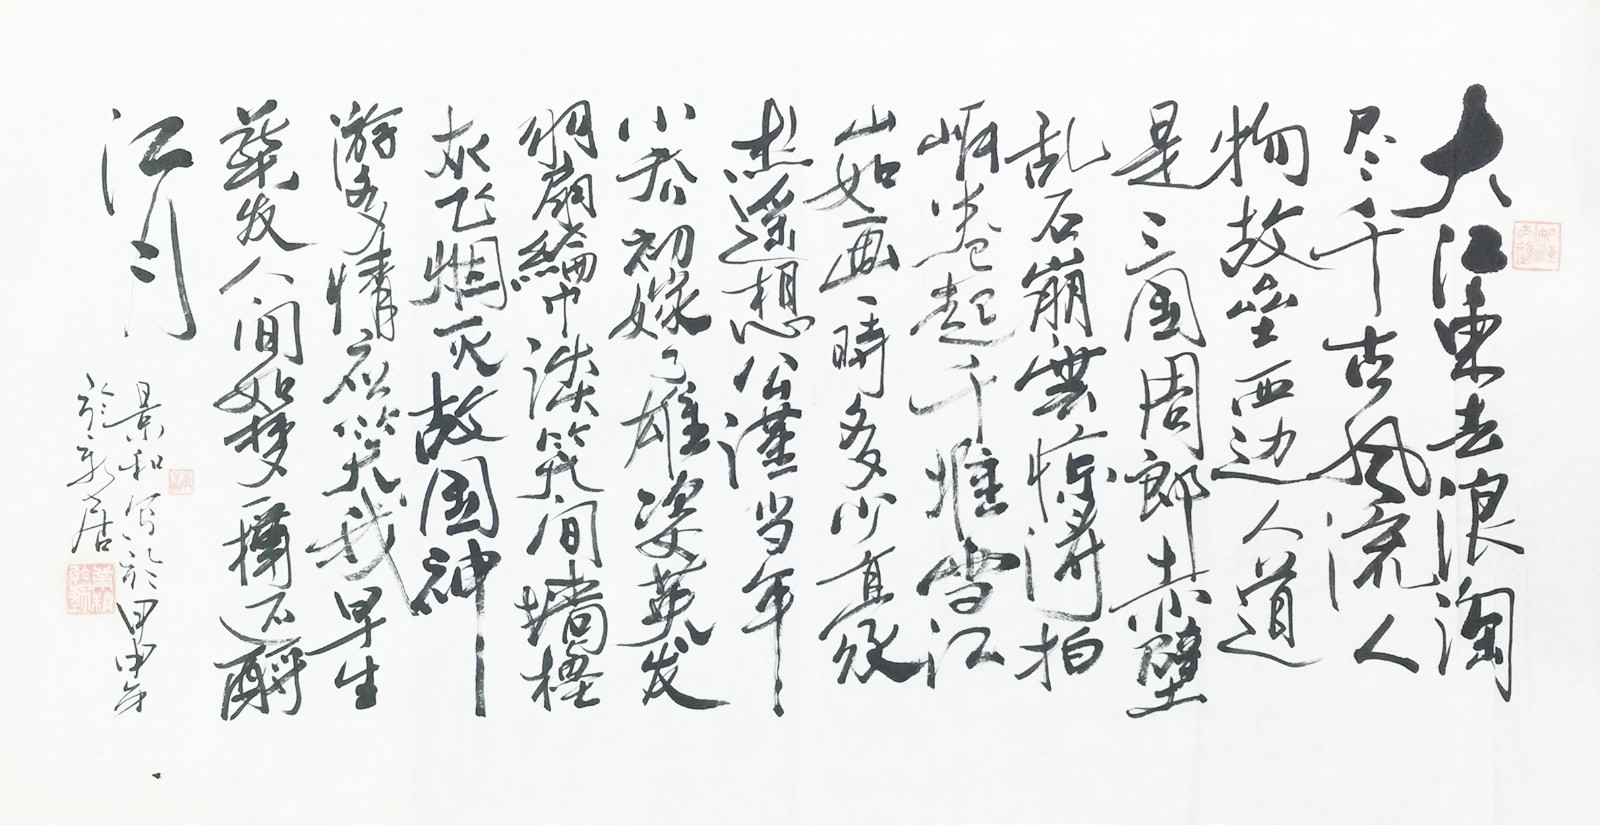 大江東去浪淘
尽千古风流人
物故垒西边人道
是三国周郎赤壁
乱石崩雲惊涛拍
岸卷起千堆雪江
山如画一時多少豪
杰遥想公谨当年
小乔初嫁了雄姿英发
羽扇綸巾淡笑间墙橹
灰飞烟灭故国神
游多情应笑我早生
华发人间如梦一樽还酹
江月
景和写於甲申年
於新居